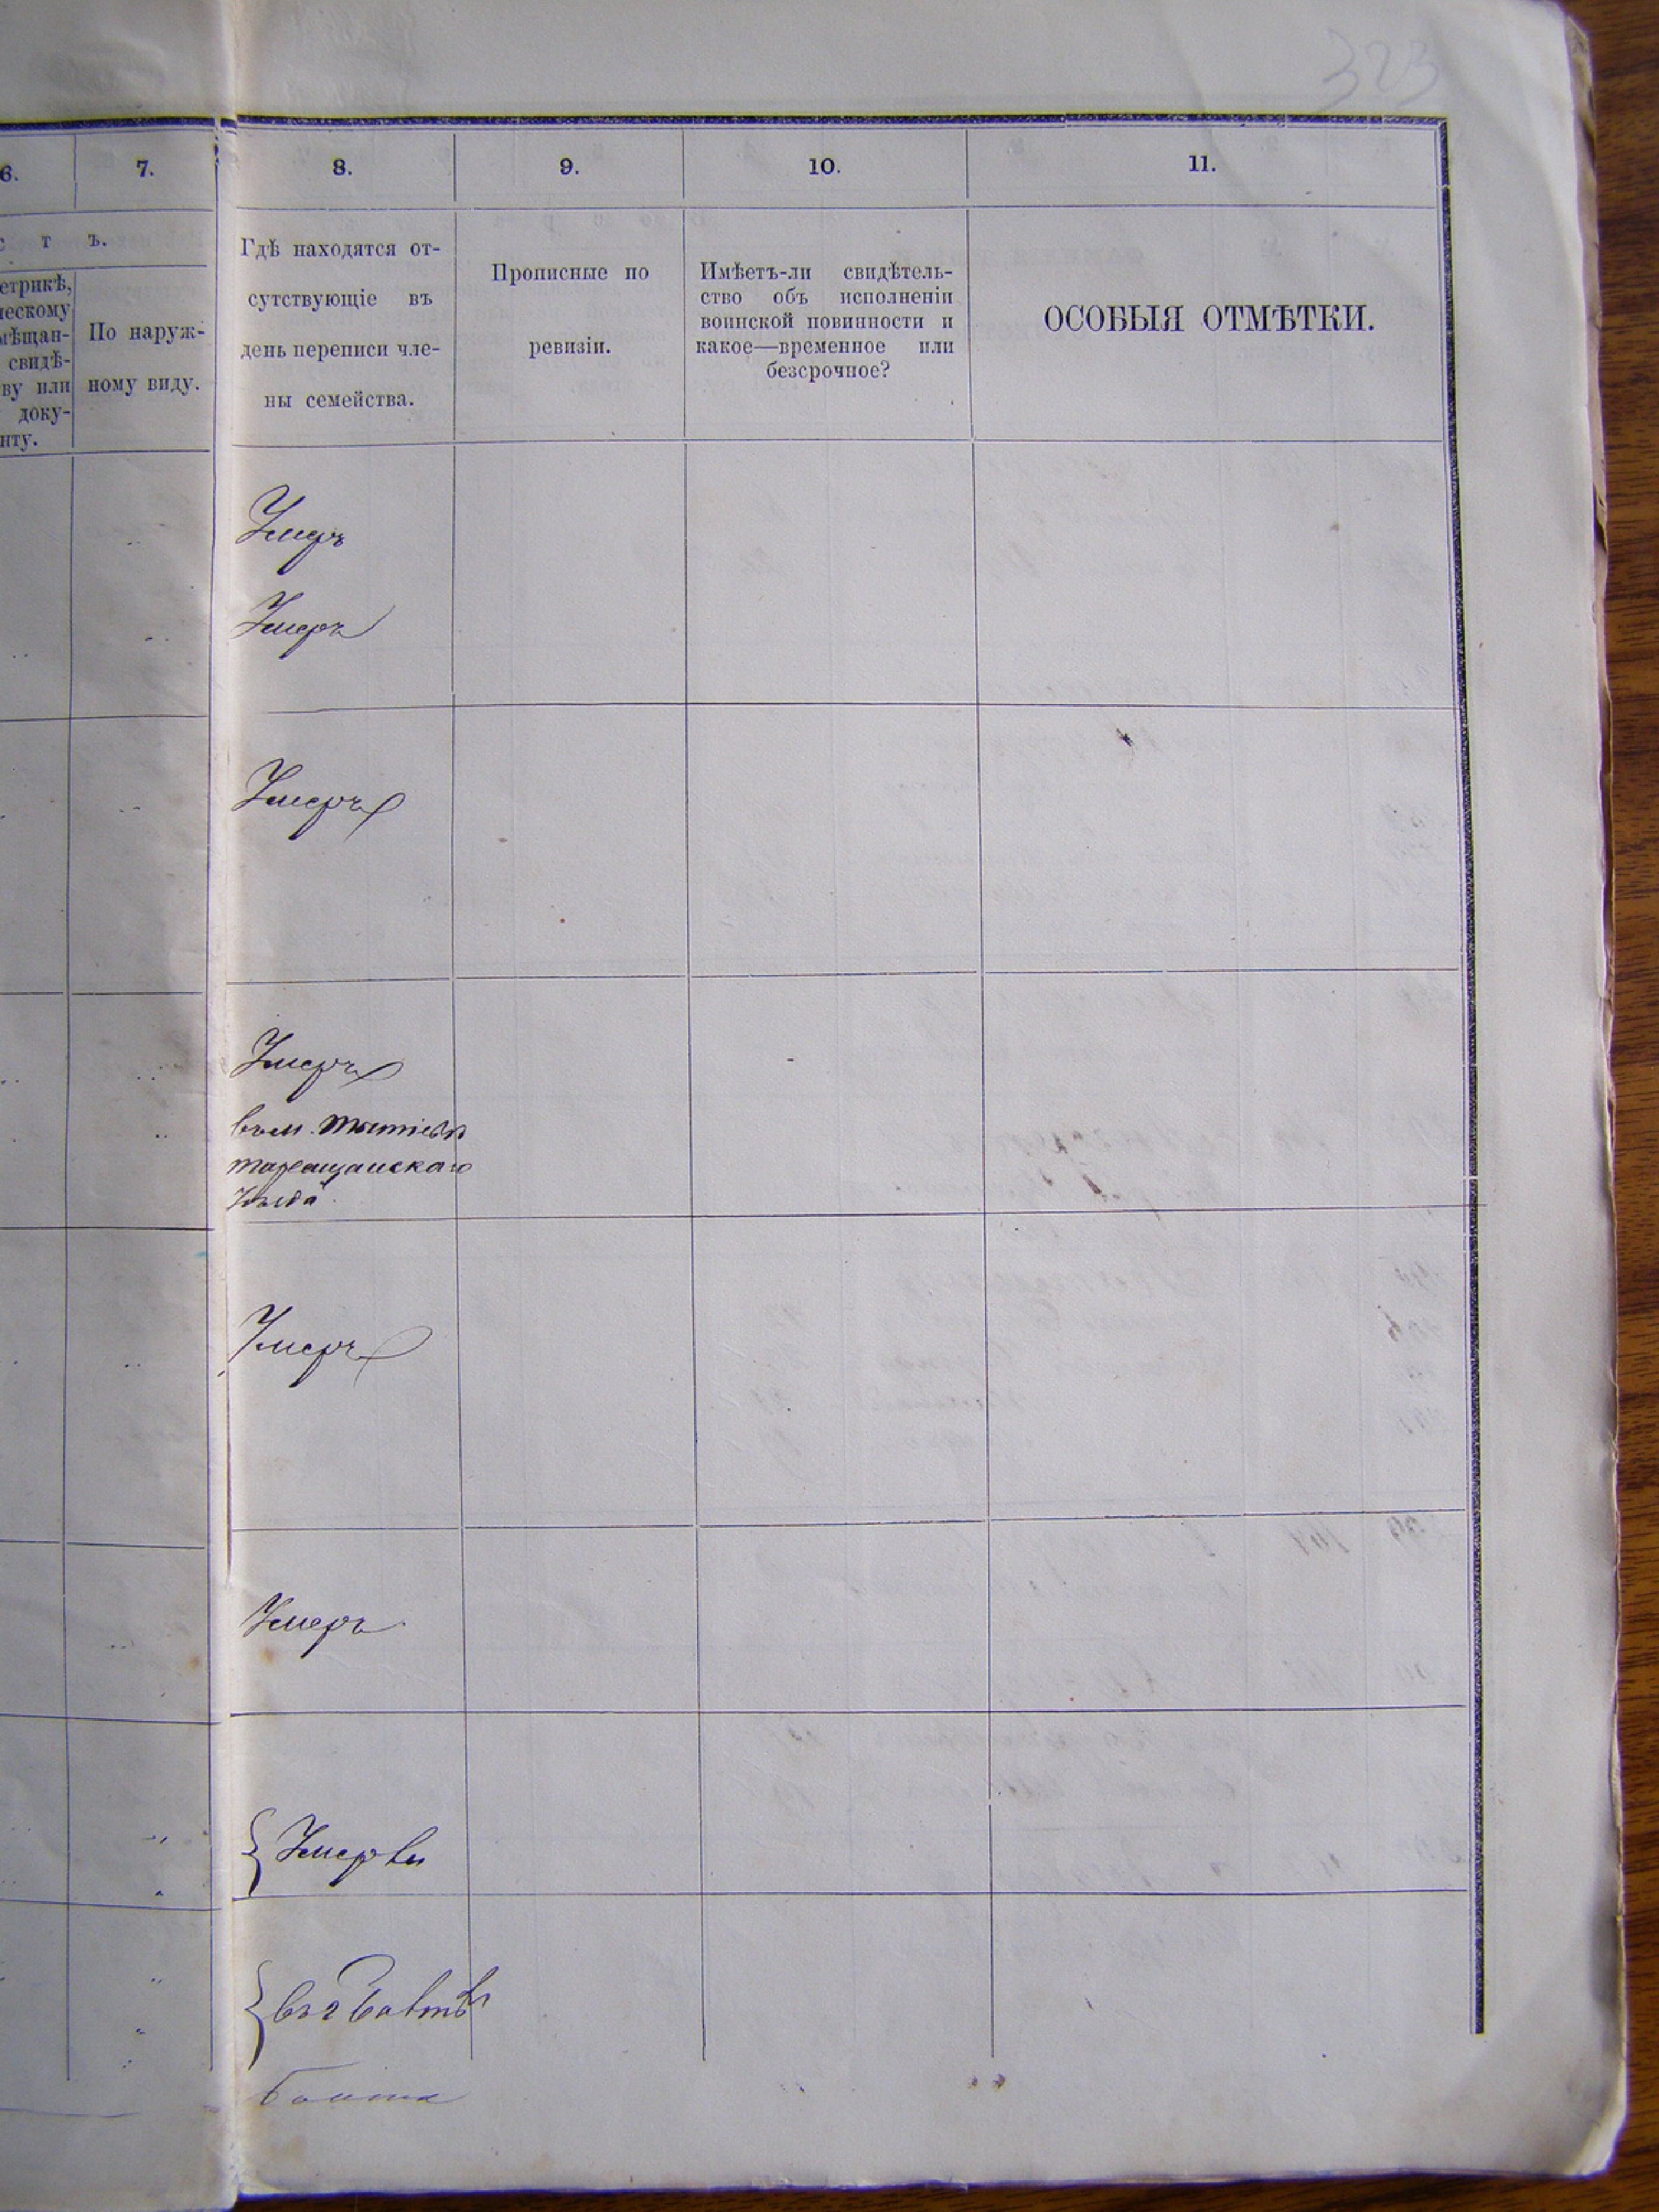 323
6.
7.
8.
9.
10.
11.
с т ъ.
етрикѣ,
ческому
мѣщан-
свидѣ-
ву или
доку-
нту.
По наруж-
ному виду.
Гдѣ находятся от-
сутствующіе въ
день переписи чле-
ны семейства.
Прописные по
ревизіи.
Имѣетъ-ли свидѣтель-
ство объ исполненіи
воинской повинности и
какое—временное или
безсрочное?
ОСОБЫЯ ОТМѢТКИ.
Умеръ
Умеръ
Умеръ
Умеръ
въ м. Тетіевѣ
таращанскаго
уѣзда
Умеръ
Умеръ
Умерли
въ г Балтѣ
Балта